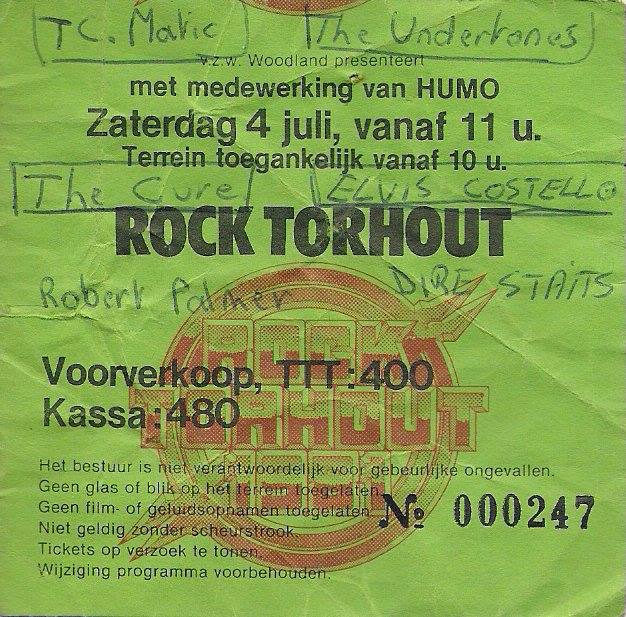 TC. Matic The Undertones
v.z.w. Woodland presenteert
met medewerking van HUMO
Zaterdag 4 juli, vanaf 11 u.
Terrein toegankelijk vanaf 10 u.
The Cure ELVIS COSTELLO
ROCK TORHOUT
Robert Palmer DIRE STAITS
ROCK
TORHOUT
1981
Voorverkoop, TTT:400
Kassa:480
Het bestuur is niet verantwoordelijk voor gebeurlijke ongevallen.
Geen glas of blik op het terrein toegelaten.
Geen film- of geluidsopnamen toegelaten.
Niet geldig zonder scheurstrook.
Tickets op verzoek te tonen.
Wijziging programma voorbehouden.
№ 000247